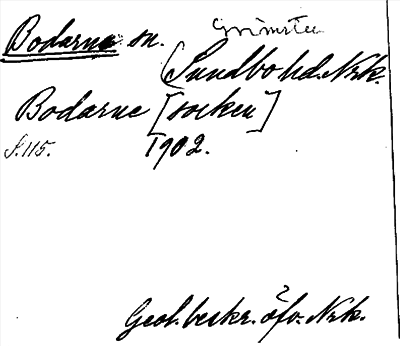 Bodarne sn. Grimsten
(Sundbo hd. Nrk.
Bodarne [socken]
S. 115. 1902.
Geol. beskr. öfv. Nrk.